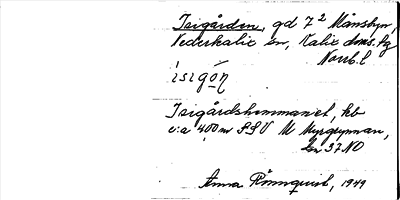 Isigården, gd 7² Månsbyn,
Nederkalix sn, Kalix doms. tg
Norrb. l
ísigó̠ṇ
Isigårdshemmanet, hb
c:a 400 m SSV M Myrgrynnan,
Gen 37 NO
Anna Rönnqvist, 1949